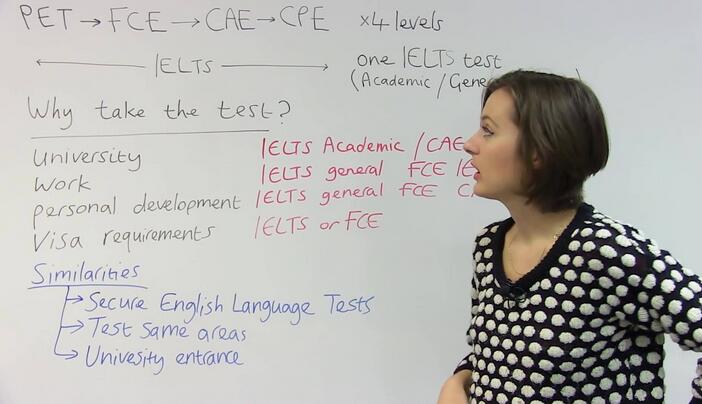 PET → FCE → CAE → CPE ×4 levels
← IELTS → one IELTS test
(Academic / Gene
Why take the test?
University IELTS Academic / CAE
Work IELTS general FCE IE
personal development IELTS general FCE
Visa requirements IELTS or FCE
Similarities
→ Secure English Language Tests
→ Test same areas
→ Univesity entrance